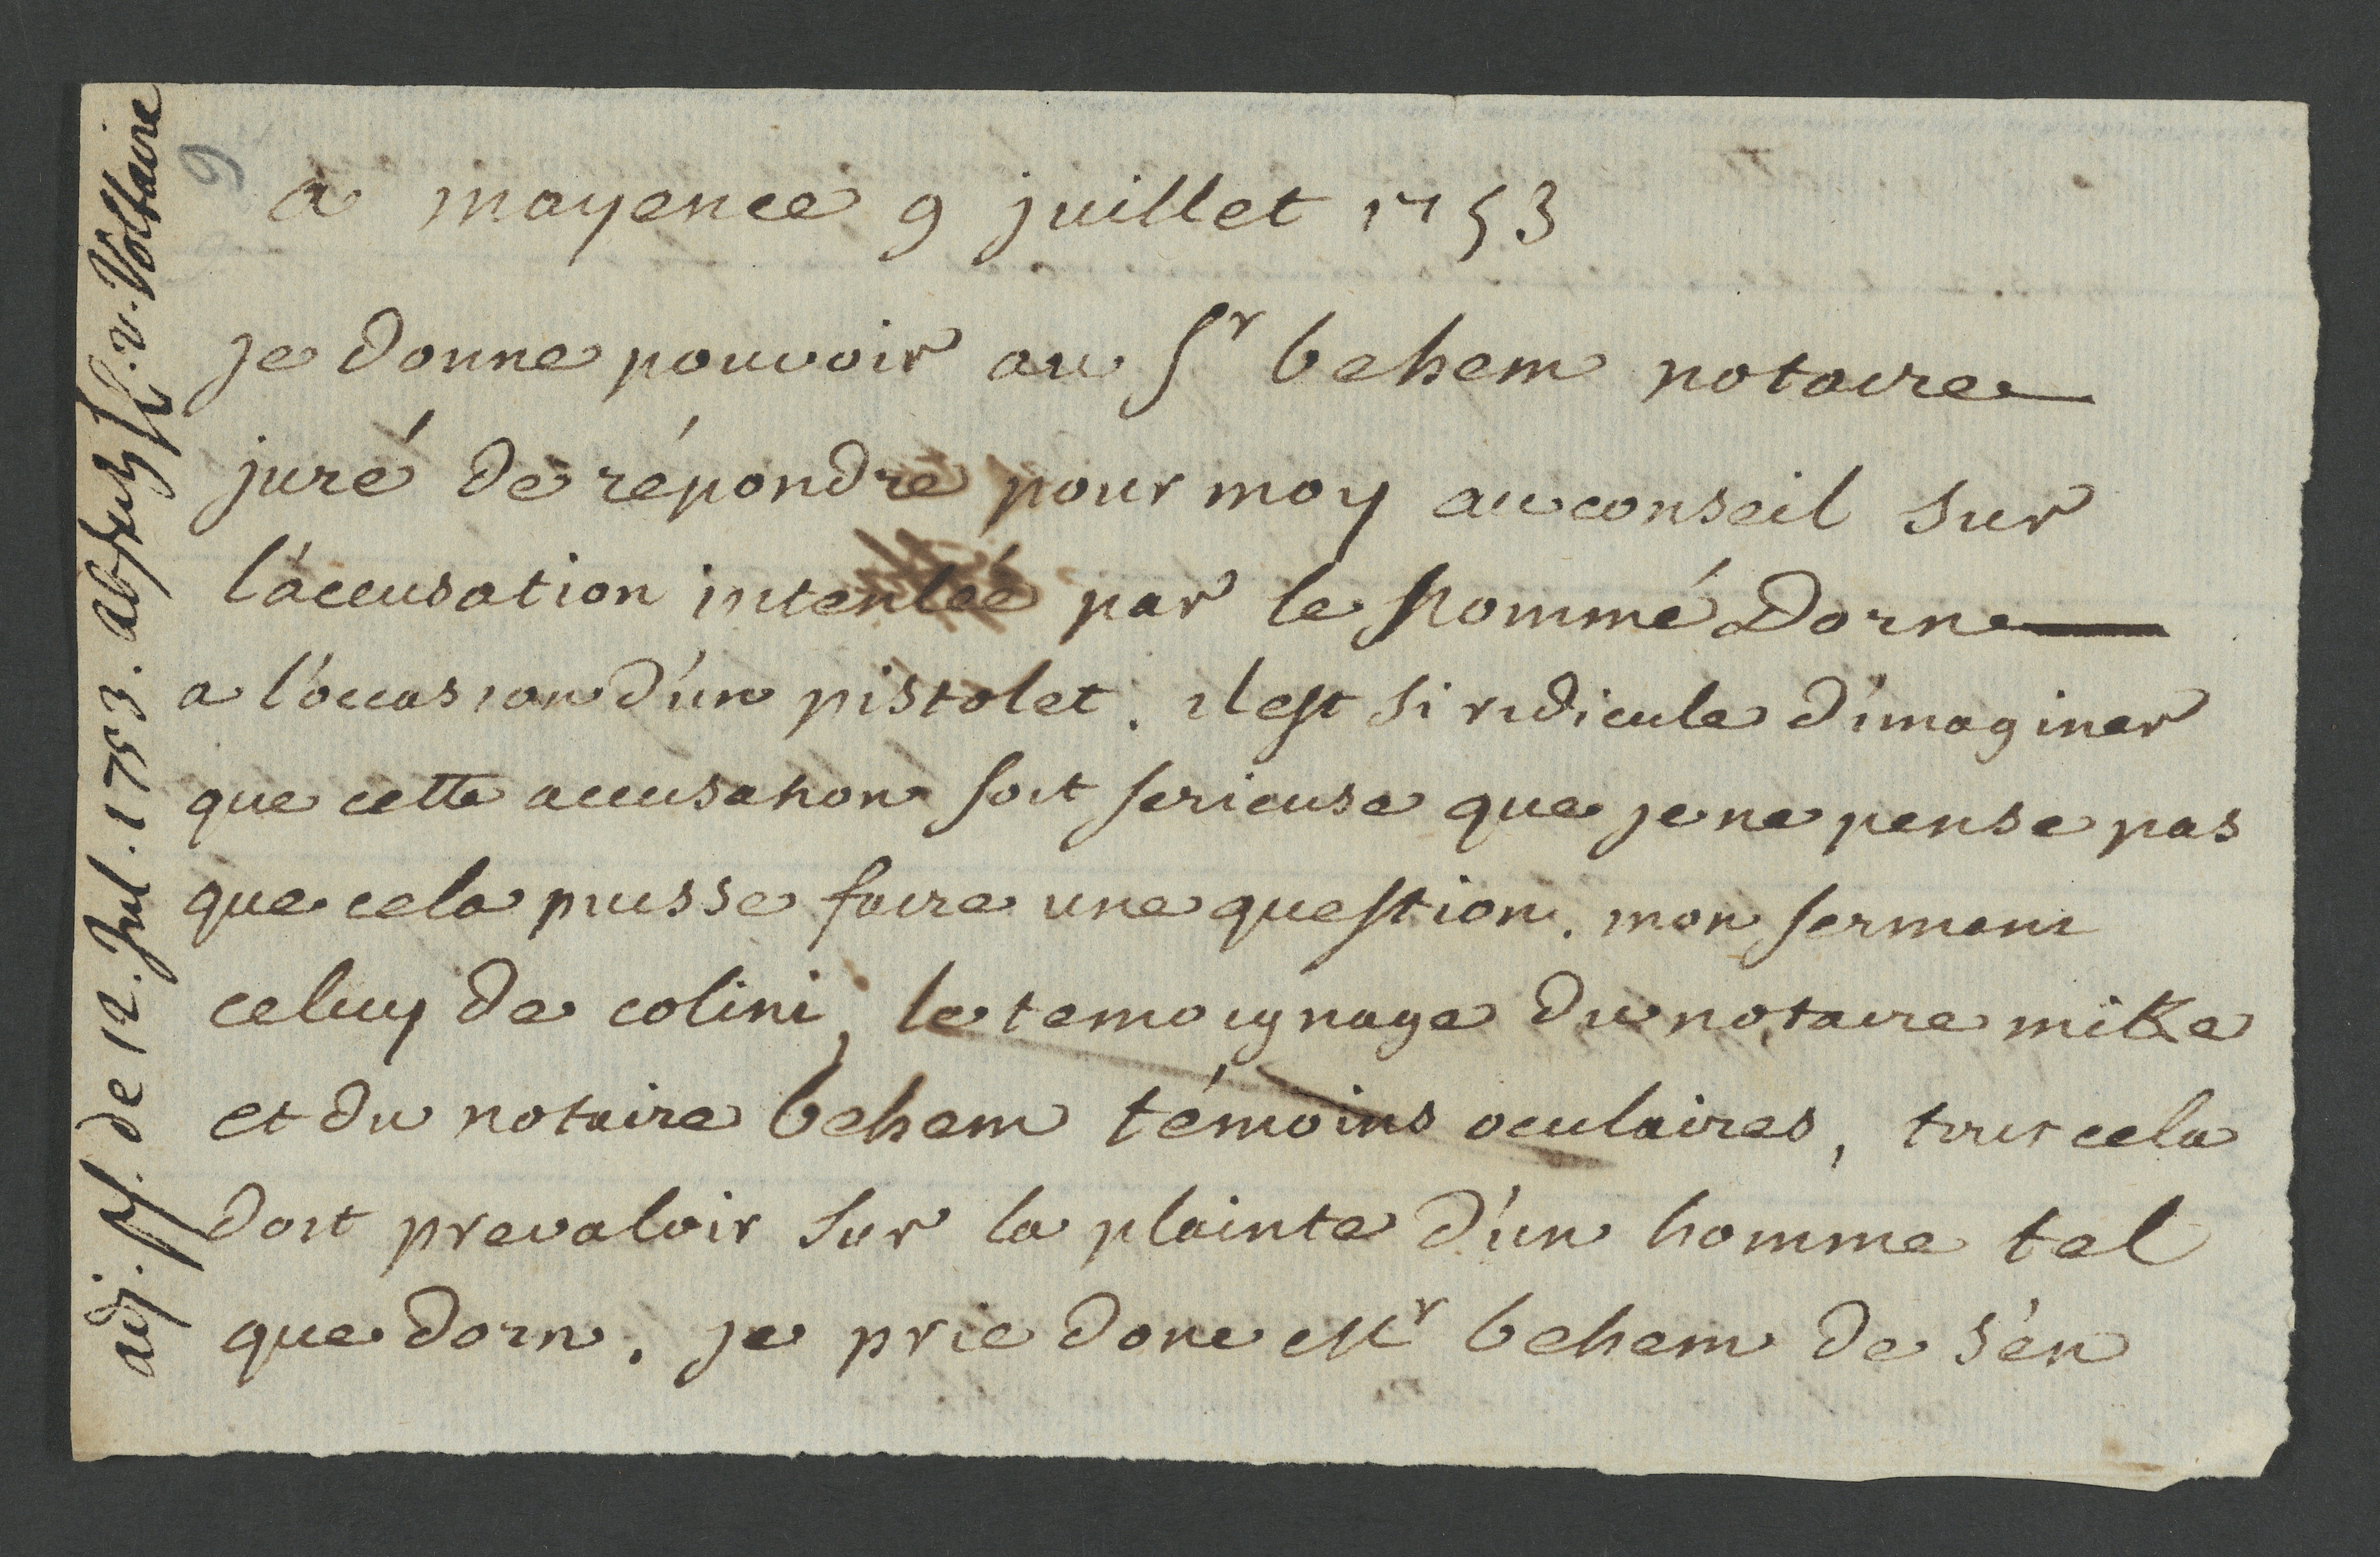 a mayence 9 juillet 1753
je donne pouvoir au Sr behem notaire
juré de répondre pour moy au conseil sur
l'accusation intentéé par le Nommé Dorn
a l'occasion d'un pistolet. il est si ridicule d'imaginer
que cette accusation soit serieuse que je ne pense pas
que cela puisse faire une question. mon serment
celuy de colini, le temoignage du notaire mike
et du notaire behem témoins oculaires, tout cela
doit prevaloir sur la plainte d'un homme tel
que dorn. je prie donc Mr behem de s'en
adj. de 12. Jul. 1753. v. Voltaire
9